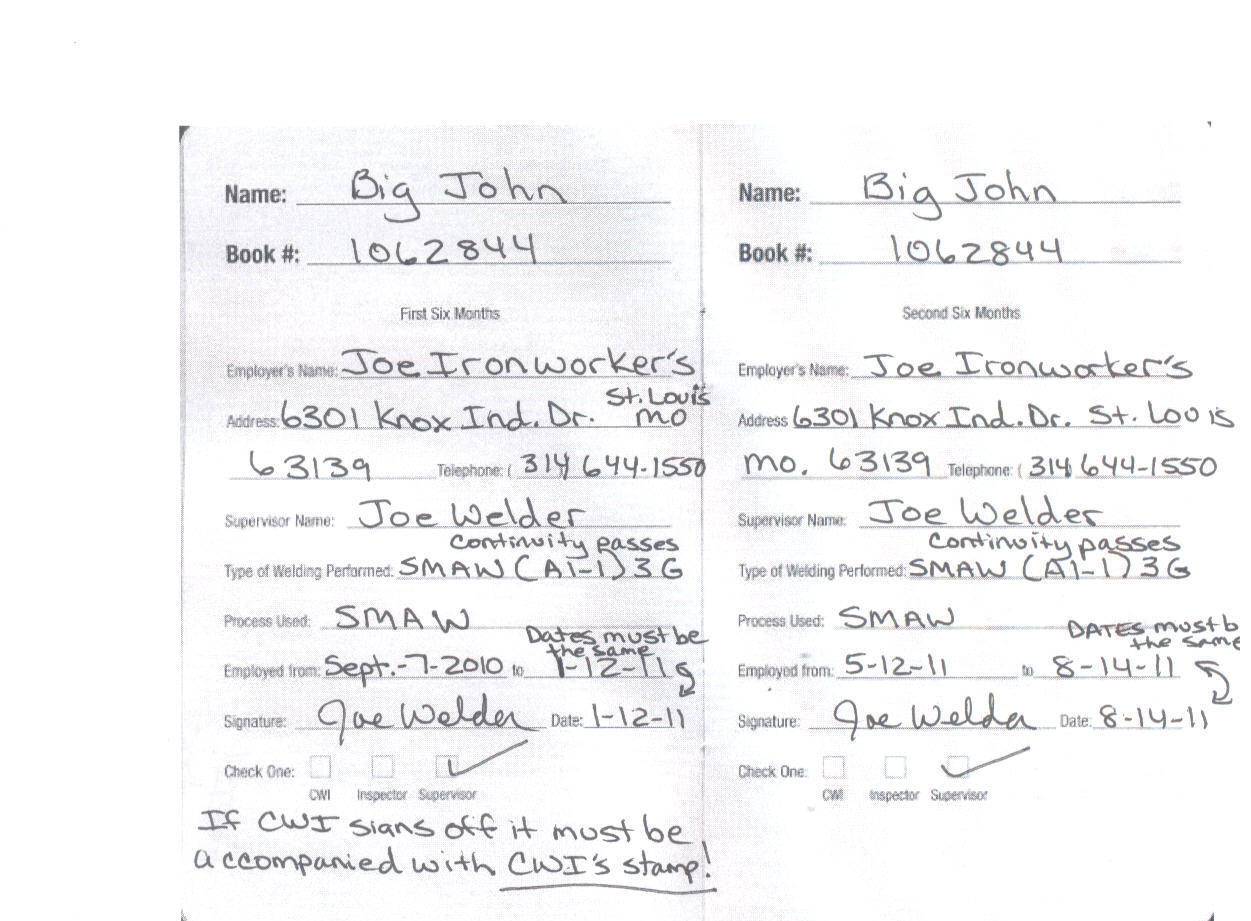 Name: Big John
Book #: 1062844
First Six Months
Employer's Name: Joe Ironworker's
St. Louis
Address: 6301 Knox Ind. Dr. mo
63139 Telephone: ( 314 644-1550
Supervisor Name: Joe Welder
continuity passes
Type of Welding Performed: SMAW (A1-1) 3G
Process Used: SMAW
Dates must be
the same
Employed from: Sept.-7-2010 to 1-12-11
Signature: Joe Welder Date: 1-12-11
Check One:
CWI Inspector Supervisor
If CWI signs off it must be
accompanied with CWI's stamp!
Name: Big John
Book #: 1062844
Second Six Months
Employer's Name: Joe Ironworker's
Address 6301 Knox Ind. Dr. St. Louis
mo. 63139 Telephone: ( 314 644-1550
Supervisor Name: Joe Welder
continuity passes
Type of Welding Performed: SMAW (A1-1) 3G
Process Used: SMAW
DATES must b
the same
Employed from: 5-12-11 to 8-14-11
Signature: Joe Welder Date: 8-14-11
Check One:
CWI Inspector Supervisor